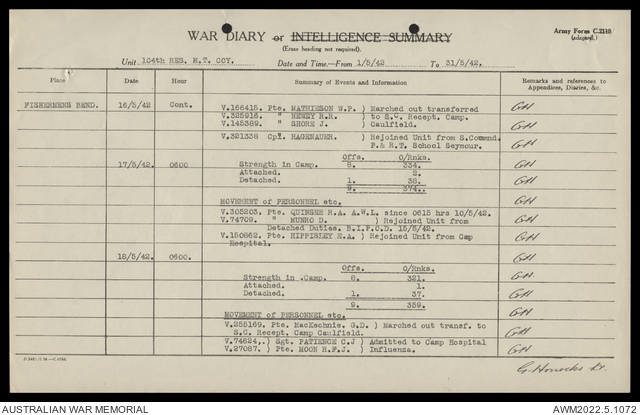 WAR DIARY or INTELLIGENCE SUMMARY
Army Form C.2118
(adapted.)
(Erase heading not required).
Unit 104th RES. M.T. COY. Date and Time.—From 1/5/42 To 31/5/42.
Place Date Hour Summary of Events and Information Remarks and references to Appendices, Diaries, &c.
FISHERMENS BEND. 16/5/42 Cont. V.166415. Pte. MATHIESON W.P. ) Marched out transferred GH
V.325916. " NEWEY R.R. ) to S.C. Recept. Camp. GH
V.145389. " SHORE J. ) Caulfield. GH
V.321338 Cpl. HAGENAUER. ) Rejoined Unit from S.Command.
P.& R.T. School Seymour. GH
Offs. O/Rnks.
17/5/42. 0600 Strength in Camp. 8. 334. GH
Attached. 2.
Detached. 1. 38. GH
9. 374.
MOVEMENT of PERSONNEL etc.
V.305203. Pte. QUINSEE R.A. A.W.L. since 0615 hrs 10/5/42. GH
V.74709. " MUNRO D. ) Rejoined Unit from
Detached Duties. B.I.P.O.D. 15/5/42. GH
V.150862. Pte. HIPPISLEY E.A. ) Rejoined Unit from Cap
Hospital. GH
18/5/42. 0600.
Offs. O/Rnks.
Strength in .Camp. 8. 321. GH
Attached. 1.
Detached. 1. 37. GH
9. 359.
MOVEMENT of PERSONNEL etc.
V.255169. Pte. MacKechnie. G.D. ) Marched out transf. to
S.C. Recept. Camp Caulfield. GH
V.74624,.) Sgt. PATIENCE C.J ) Admitted to Camp Hospital
V.27087. ) Pte. MOON R.F.J. ) Influenza. GH
Lt.
AUSTRALIAN WAR MEMORIAL AWM2022.5.1072